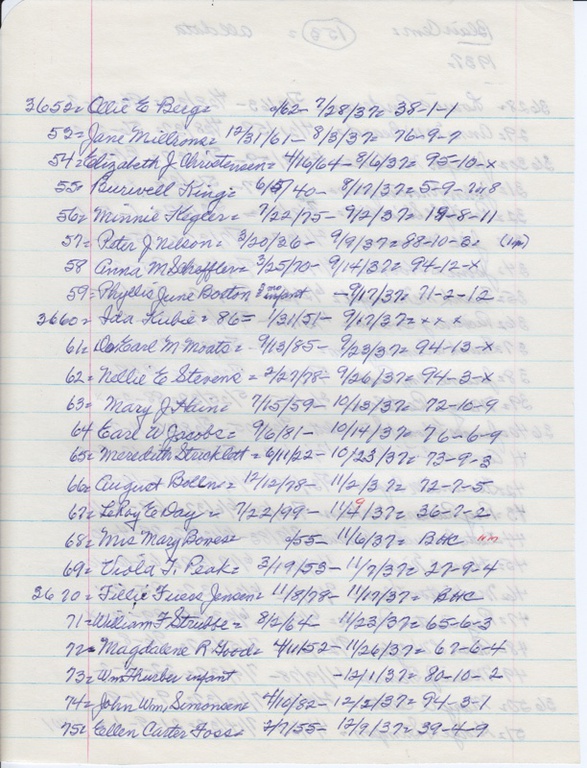 3652= Ollie E Berg= 0/62- 7/28/37= 38-1-1
53= Jane Millrons= 12/31/61- 8/3/37= 76-9-7
54= Elizabeth J Christensen= 4/16/64- 8/6/37= 95-10-x
55= Burwell King= 6/5/40- 8/17/37= 5-9-7&8
56= Minnie Kegler= 7/22/75- 9/2/37= 19-8-11
57= Peter J Nelson= 3/20/36- 9/9/37= 88-10-3=
58 Anna M Scheffler= 3/25/70- 9/14/37= 94-12-x
59= Phyllis June Boston 3 mo infant -9/17/37= 71-2-12
3660= Ida Kubie= 86= 1/31/51- 9/17/37= x x x
61= Dr Earl M Moats= 9/13/85- 9/23/37= 94-13-x
62= Nellie E Stevens= 2/27/78- 9/26/37= 94-3-x
63= Mary J Hain= 7/15/59- 10/13/37= 72-10-9
64 Earl W Jacobs= 9/6/81- 10/14/37= 76-6-9
65= Meredith Stricklett= 6/11/22- 10/23/37= 73-9-3
66= August Bolln= 12/12/78- 11/2/37= 72-7-5
67= LeRoy E Day= 7/22/99- 11/9/37= 36-7-2
68= Mrs Mary Bovess= 0/55- 11/6/37= BHC
69= Viola F. Peak= 3/19/53- 11/7/37= 27-9-4
3670= Tillie Fuess Jensen= 11/8/78- 11/17/37= BHC
71= William F Strubbe= 8/2/64- 11/23/37= 65-6-3
72= Magdalene R Goode= 4/11/52- 11/26/37= 67-6-4
73= Wm Thurber infant -12/1/37= 80-10-2
74= John Wm. Simonsen= 4/10/82- 12/2/37= 74-3-1
75= Ellen Carter Foss= 2/7/55- 12/9/37= 39-4-9